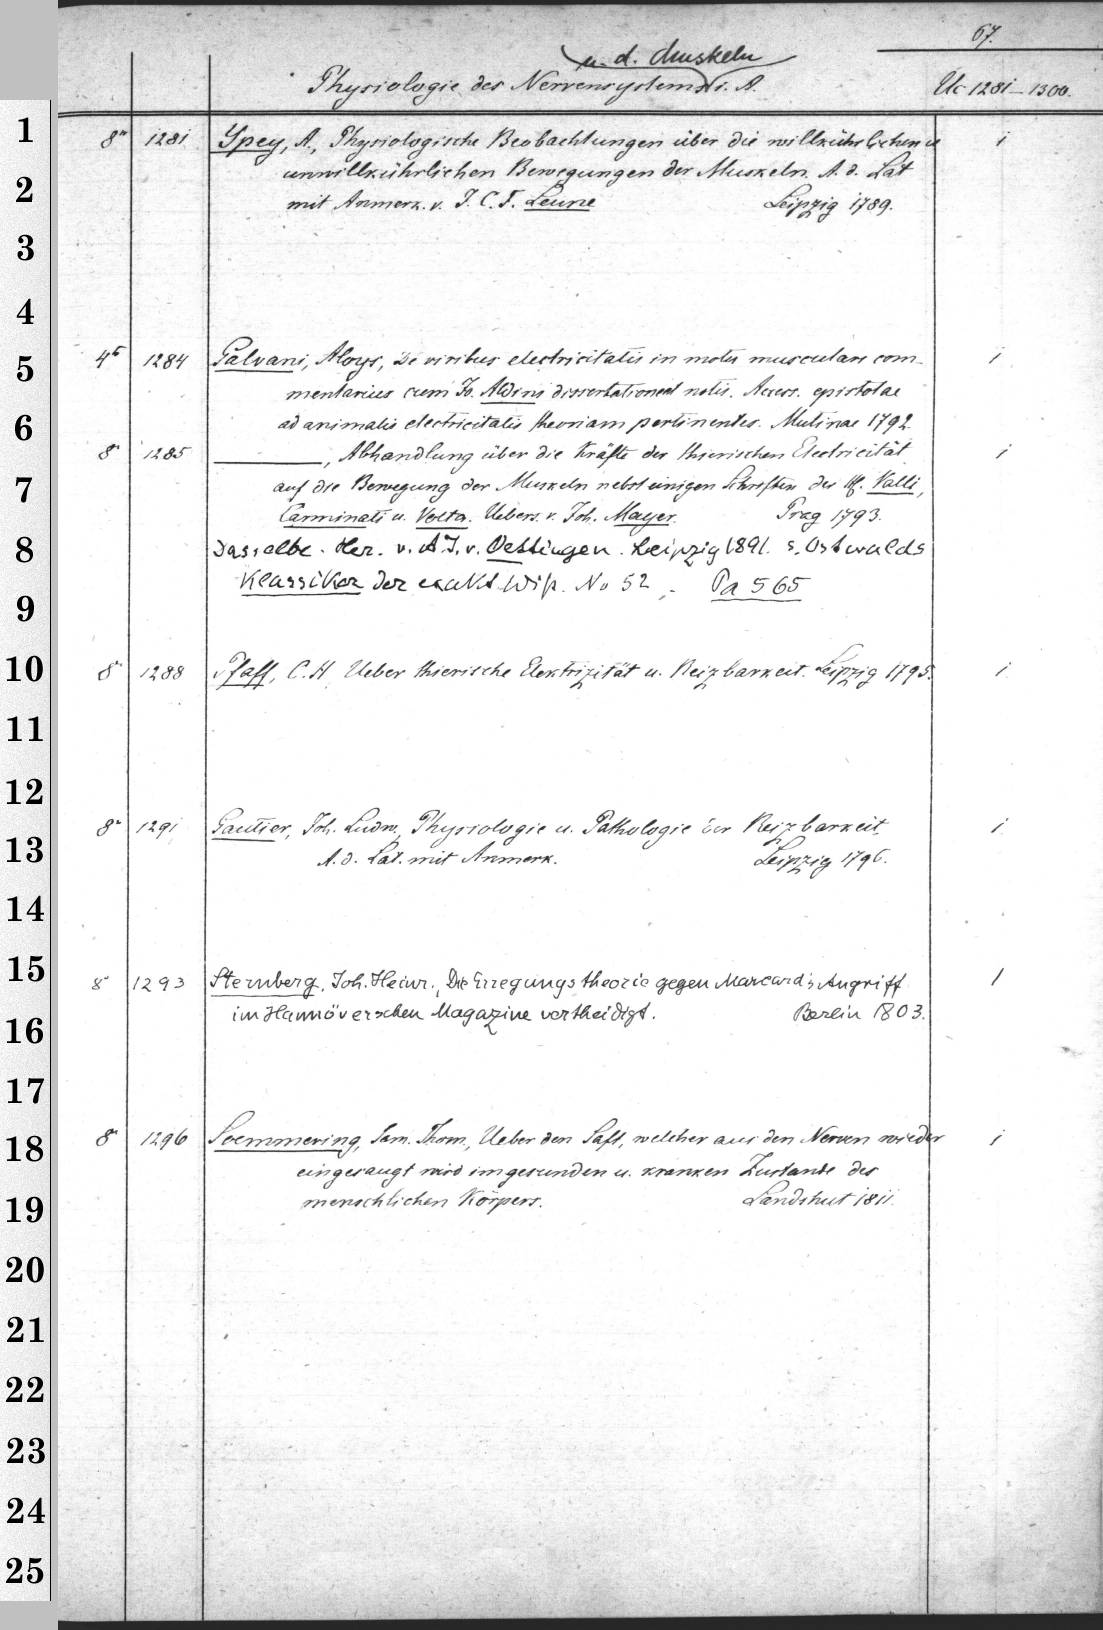 67.
u. d. Muskeln
Physiologie des Nervensystems i. A. Uc 1281–1300.
1 8° 1281 Ypey, A., Physiologische Beobachtungen über die willkührlichen u 1
2 unwillkührlichen Bewegungen der Muskeln. A. d. Lat
mit Anmerk. v. J. C. F. Leune Leipzig 1789.
3
4
5 4° 1284 Galvani, Aloys, De viribus electricitatis in motu musculari com- 1
mentarius cum Jo. Aldini dissertatione et notis. Access. epistolae
6 ad animalis electricitatis theoriam pertinentes. Mutinae 1792
8° 1285 ———, Abhandlung über die Kräfte der thierischen Electricität 1
7 auf die Bewegung der Muskeln nebst einigen Schriften der H. Valli,
Carminati u. Volta. Uebers. v. Joh. Mayer. Prag 1793.
8 Dasselbe. Her. v. A. J. v. Oettingen. Leipzig 1891. s. Ostwalds
9 Klassiker der exakt. Wiss. No 52. Pa 565
10 8° 1288 Pfaff, C. H. Ueber thierische Elektrizität u. Reizbarkeit. Leipzig 1795. 1
11
12
13 8° 1291 Gautier, Joh. Ludw., Physiologie u. Pathologie der Reizbarkeit. 1
A. d. Lat. mit Anmerk. Leipzig 1796.
14
15 8° 1293 Sternberg, Joh. Heinr., Die Erregungstheorie gegen Marcard's Angriff 1
16 im Hannöverschen Magazine vertheidigt. Berlin 1803.
17
18 8° 1296 Soemmering, Sam. Thom., Ueber den Saft, welcher aus den Nerven wieder 1
eingesaugt wird im gesunden u. kranken Zustande des
19 menschlichen Körpers. Landshut 1811.
20
21
22
23
24
25